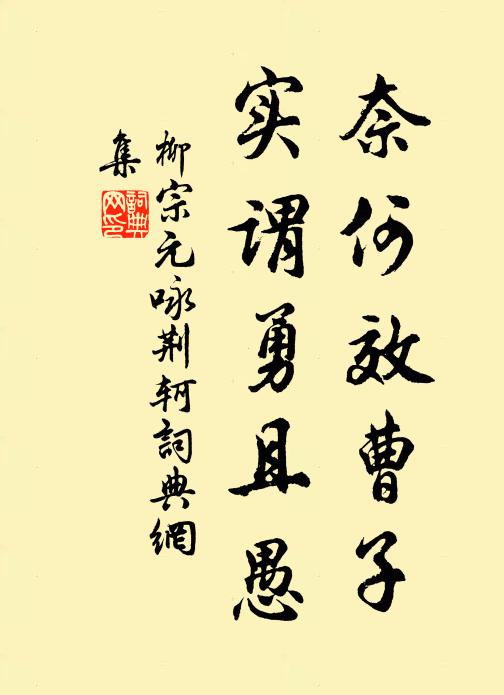 奈何效曹子
实谓勇且愚
柳宗元咏荆轲詞典網
集
詞典
网印